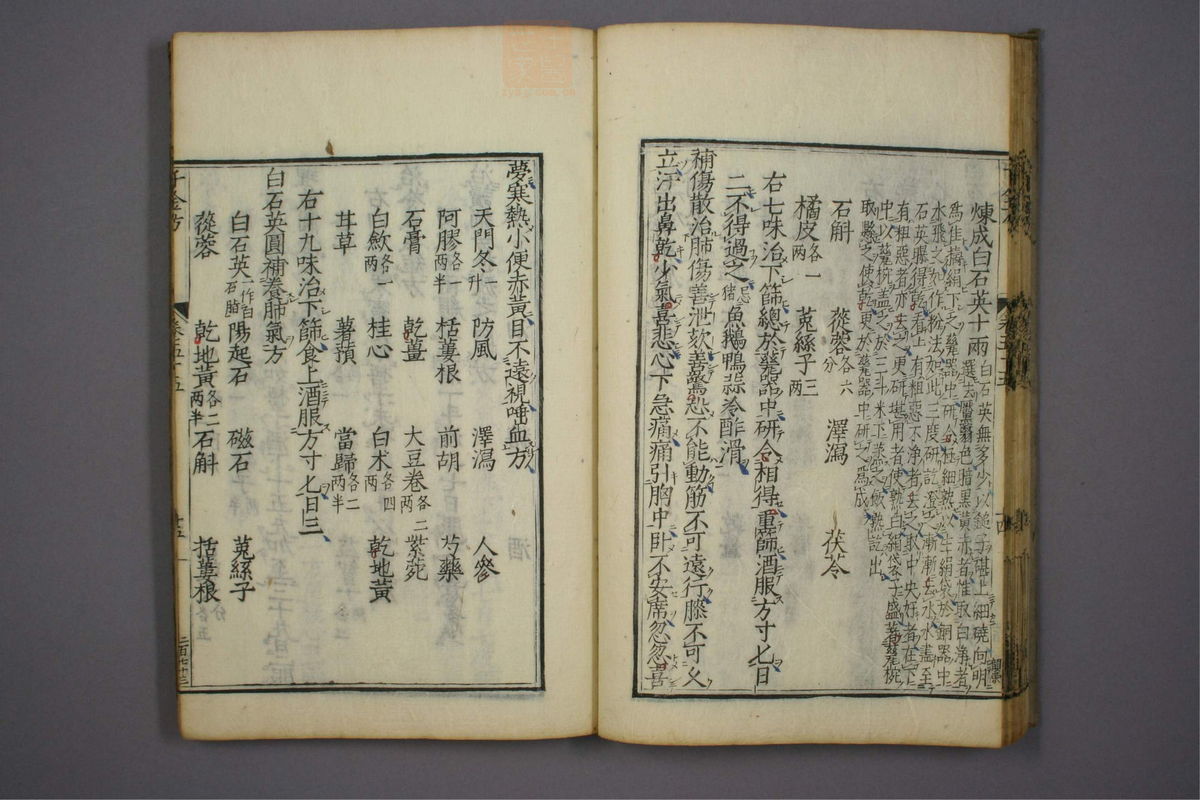 煉成白石英十兩
白石英無多少以鎚子碪上細䃈向明
選去黶翳色暗黑黃赤者惟取白淨者
為佳擣絹下之瓷器中研令極細熟以生絹袋於銅器中
水飛之如作粉法如此三度研訖澄之漸漸去水水盡至
石英曝得乾看上有粗惡不淨者去之取中央好者在下
有粗惡者亦去之更研堪用者使熟白絹袋子盛著瓷椀
中以瓷椀蓋之於三斗米下蒸之飯熟訖出
取懸之使乾更於瓷器中研之為成
石斛 蓯蓉各六分 澤瀉 茯苓
橘皮各一兩 菟絲子三兩
右七味治下篩總於瓷器中研令相得重篩酒服方寸匕日
二不得過之忌猪魚鵝鴨蒜冷酢滑
補傷散治肺傷善泄欬善驚恐不能動筋不可遠行膝不可久
立汗出鼻乾少氣喜悲心下急痛痛引胸中臥不安席忽忽喜
夢寒熱小便赤黃目不遠視唾血方
天門冬一升 防風 澤瀉 人參
阿膠各一兩半 栝蔞根 前胡 芍藥
石膏 乾薑 大豆卷各二兩 紫菀
白歛各一兩 桂心 白朮各四兩 乾地黃
甘草 薯蕷 當歸各二兩半
右十九味治下篩食上酒服方寸匕日三
白石英圓補養肺氣方
白石英一作白石脂 陽起石 磁石 菟絲子
蓯蓉 乾地黃各二兩半 石斛 栝蔞根